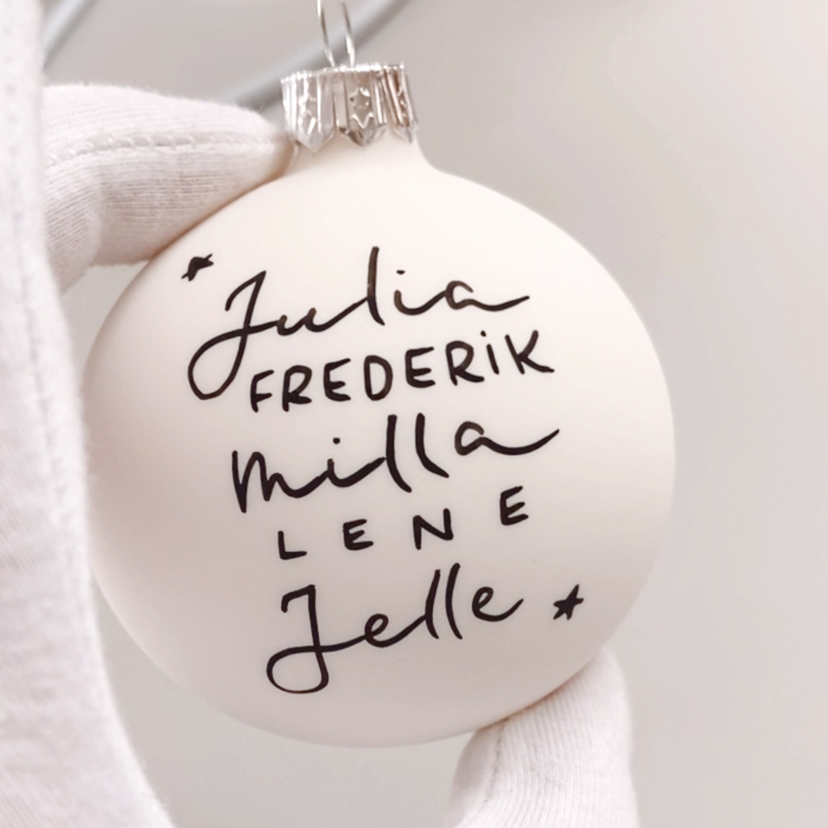 Julia
FREDERiK
Milla
LENE
Jelle